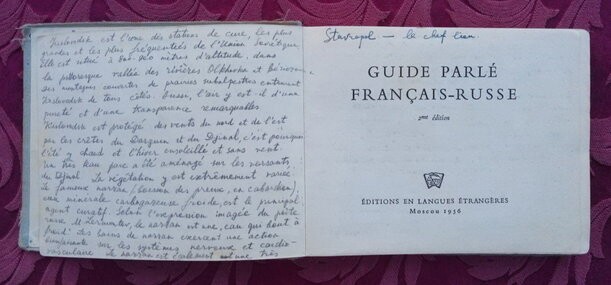 Kislovodsk est l'une des stations de cure, les plus
grandes et les plus fréquentées de l'Union Soviétique.
Elle est située à 800-900 mètres d'altitude, dans
la pittoresque vallée des rivières Olkhovka et
ses montagnes couvertes de prairies subalpestres entourent
Kislovodsk de tous côtés. Aussi, l'air y est-il d'une
pureté et d'une transparence remarquables.
Kislovodsk est protégé des vents du nord et de l'est
par les crêtes du Darguen et du Djinal, c'est pourquoi
l'été y chaud et l'hiver ensoleillé et sans vent.
Un très beau parc a été aménagé sur les versants
du Djinal. La végétation y est extrêmement variée.
le fameux narzan (boisson des preux, en cabardien),
eau minérale carbogazeuse froide, est le principal
agent curatif. Selon l'expression imagée du poète
russe M. Lermontov, le narzan est une eau qui bout à
froid. Les bains de narzan exercent une action
sur les systèmes nerveux et cardio-
vasculaire. Le narzan est également une très
Stavropol — le chef lieu.
GUIDE PARLÉ
FRANÇAIS-RUSSE
2me édition
ÉDITIONS EN LANGUES ÉTRANGÈRES
Moscou 1956